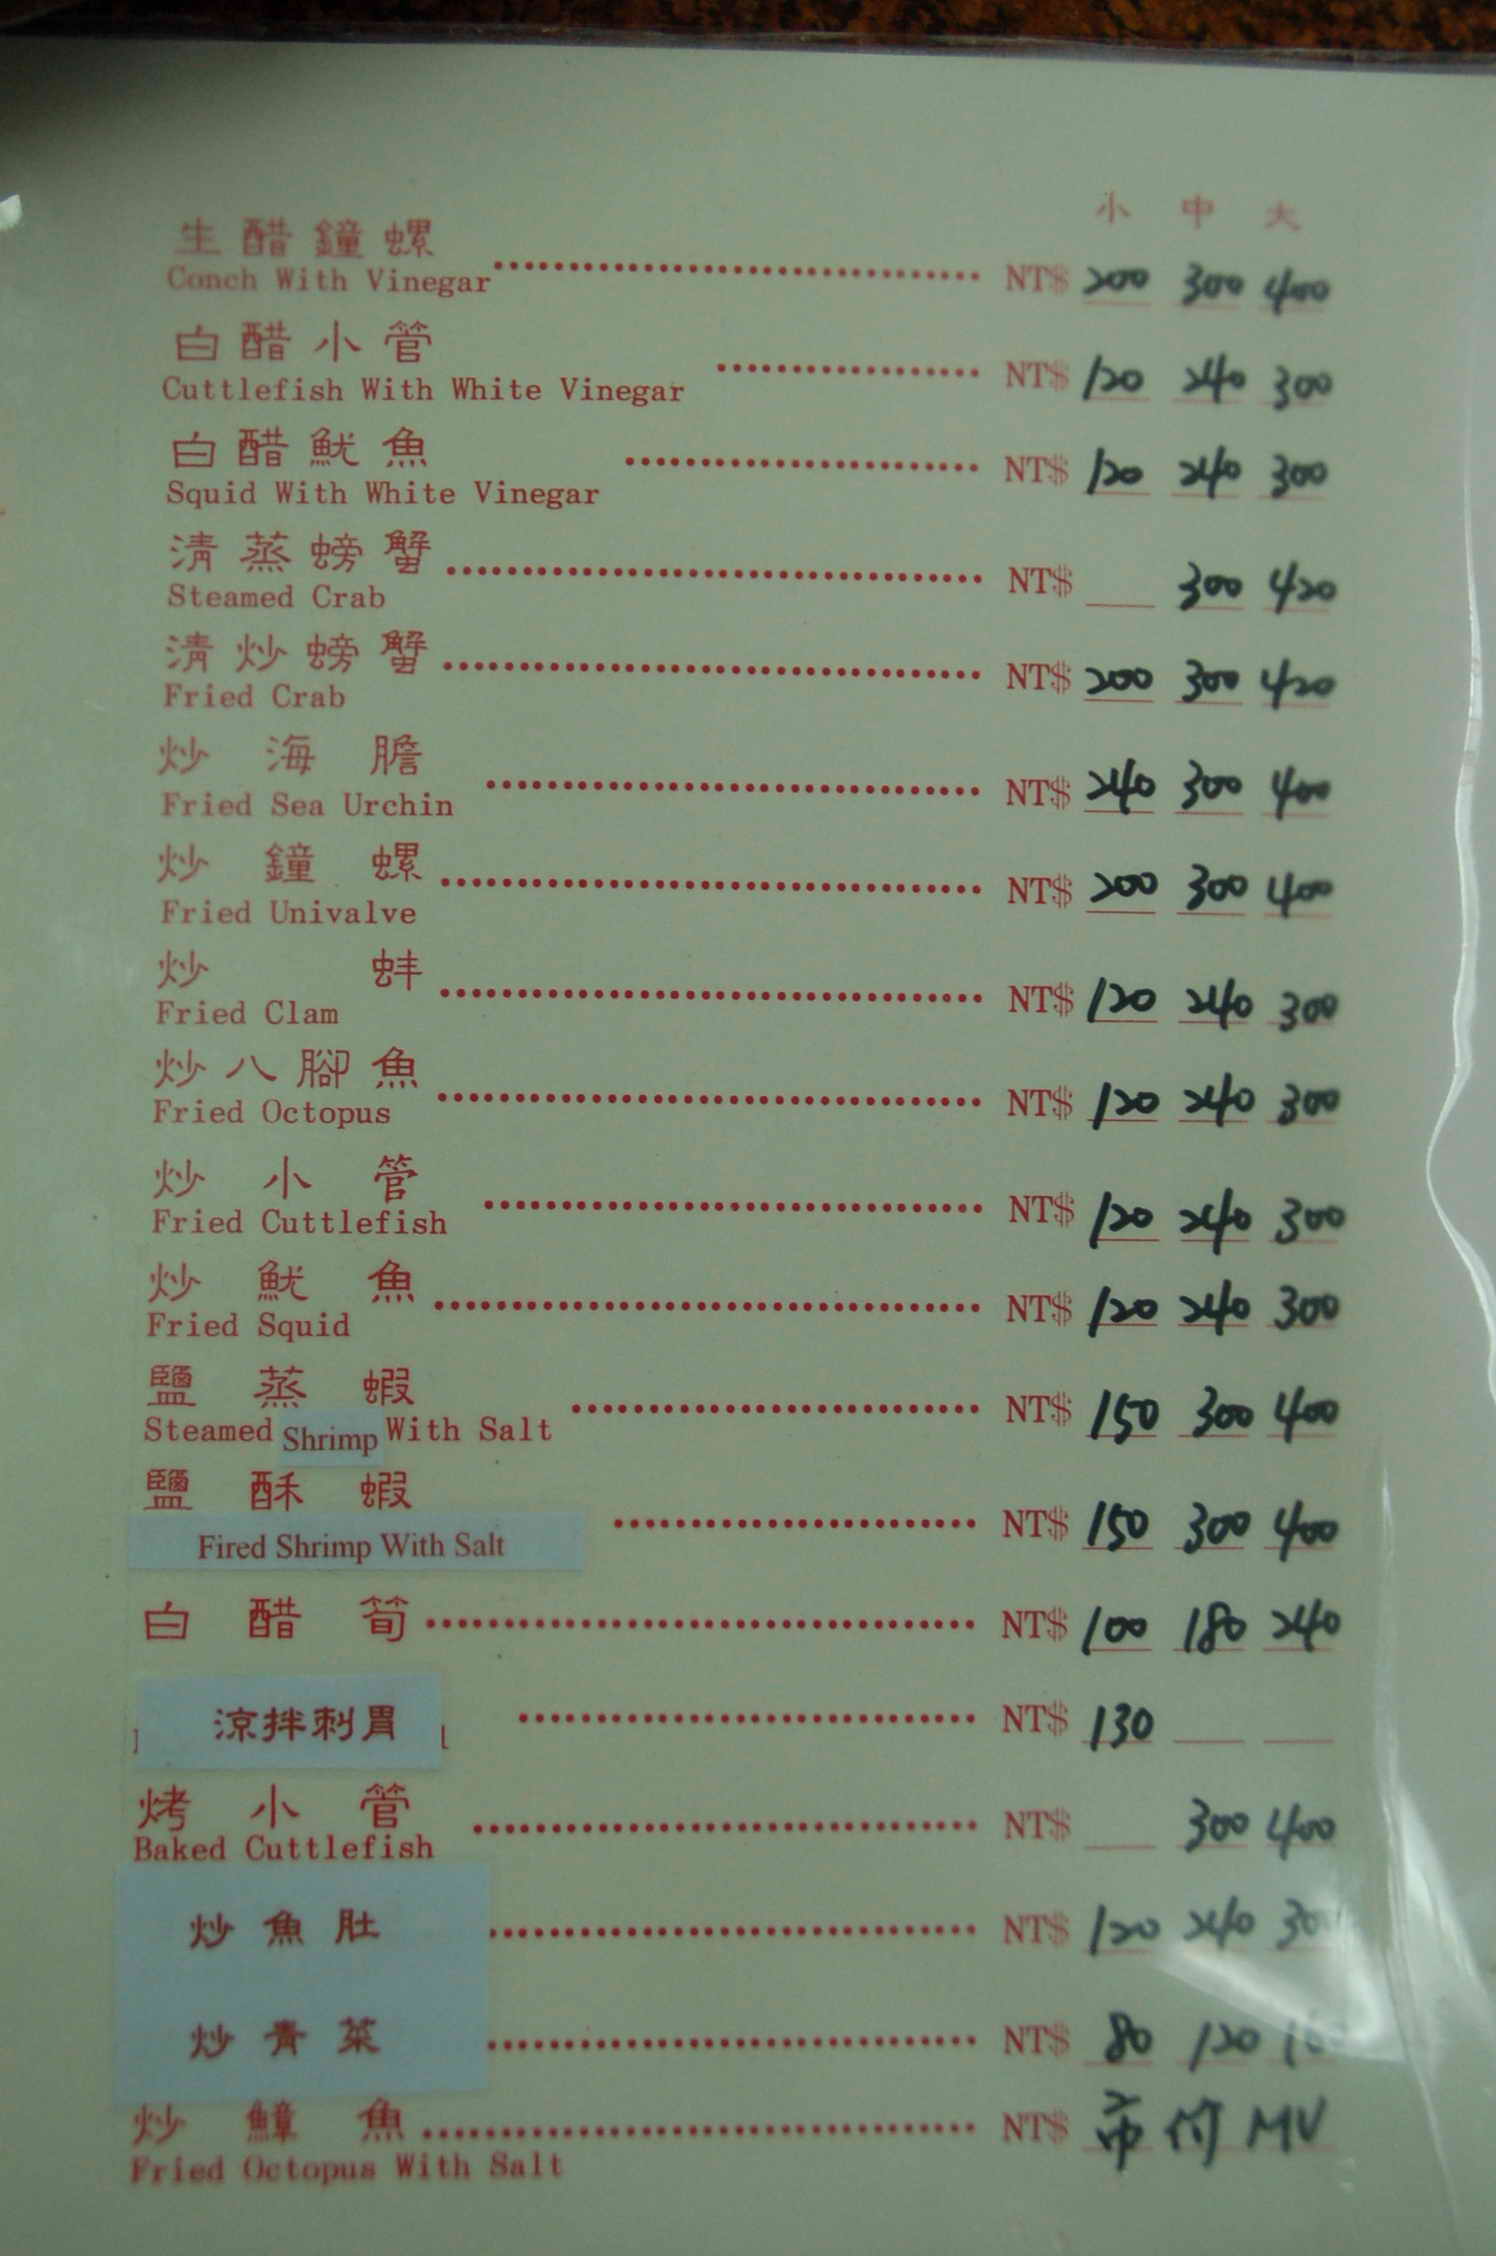 小 中 大
生醋鐘螺
Conch With Vinegar NT$ 200 300 400
白醋小管
Cuttlefish With White Vinegar NT$ 120 240 300
白醋魷魚
Squid With White Vinegar NT$ 120 240 300
清蒸螃蟹
Steamed Crab NT$ 300 420
清炒螃蟹
Fried Crab NT$ 200 300 420
炒海膽
Fried Sea Urchin NT$ 240 300 400
炒鐘螺
Fried Univalve NT$ 200 300 400
炒蚌
Fried Clam NT$ 120 240 300
炒八腳魚
Fried Octopus NT$ 120 240 300
炒小管
Fried Cuttlefish NT$ 120 240 300
炒魷魚
Fried Squid NT$ 120 240 300
鹽蒸蝦
Steamed Shrimp With Salt NT$ 150 300 400
鹽酥蝦
Fired Shrimp With Salt NT$ 150 300 400
白醋筍 NT$ 100 180 240
涼拌刺胃 NT$ 130
烤小管
Baked Cuttlefish NT$ 300 400
炒魚肚 NT$ 120 240
炒青菜 NT$ 80 120
炒鱆魚 NT$ 市价 MV
Fried Octopus With Salt